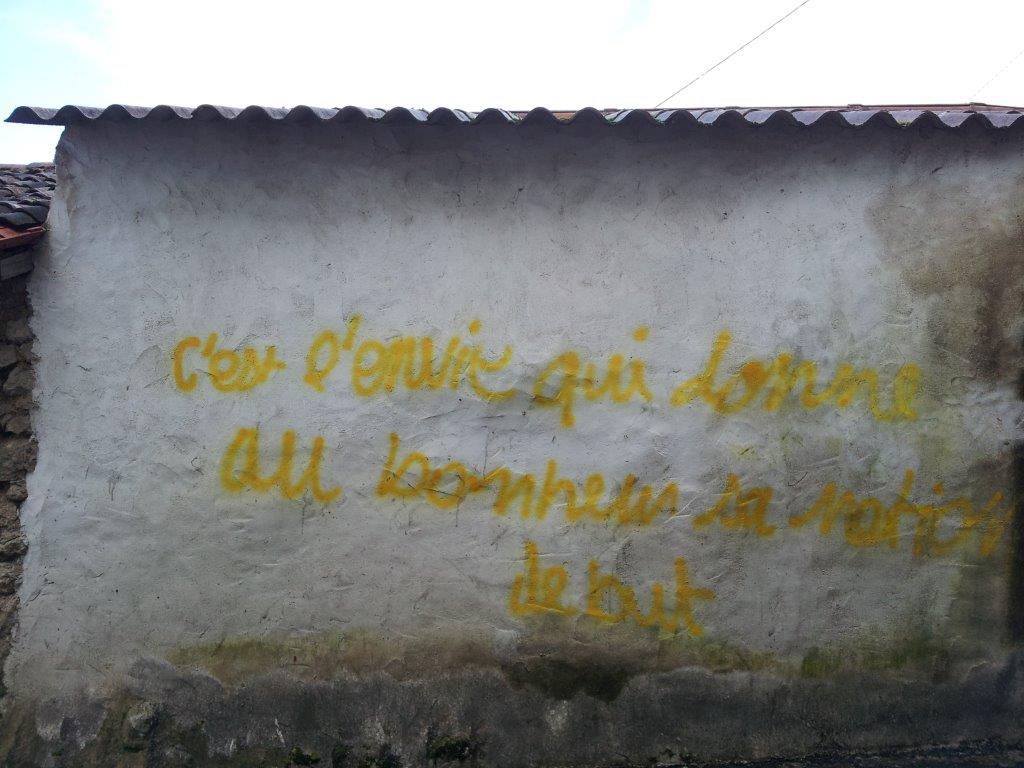 c'est l'envie qui donne
au bonheur sa notion
de but